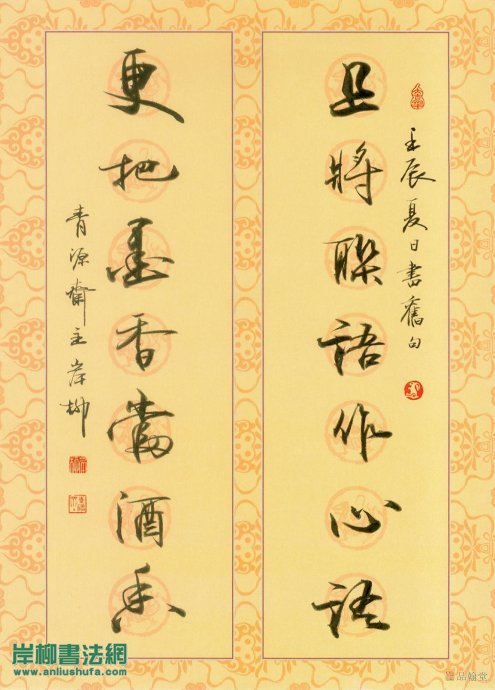 壬辰夏日書舊句
且將聯語作心語
更把墨香當酒香
青源齋主岸柳
岸柳書法網
www.anliushufa.com
品翰堂